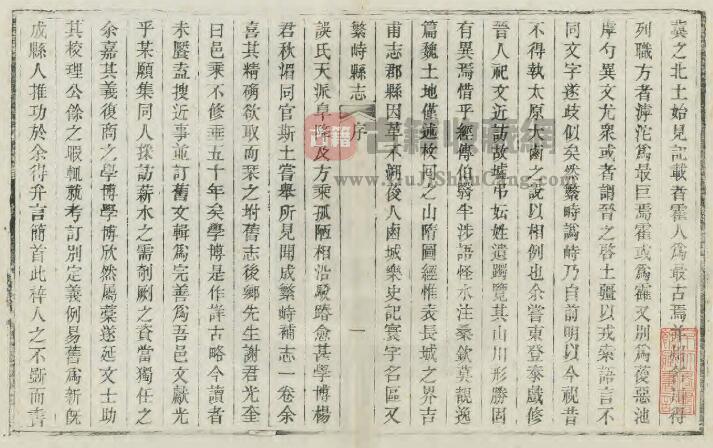 冀之北土始見記載者霍人爲最古焉
列職方者滹沱爲最巨焉霍或爲靃又別爲葰惡池
虖勺異文尤衆或者謂晉之啓土疆以戎索語言不
同文字遂歧似矣然繁畤譌峙乃自前明以今視昔
不得執太原大鹵之說以相例也余嘗東登泰戲修
晉人祀文近訪故墟弔妘姓遺躅覽其山川形勝因
有異焉惜乎經傳伯翳牛涉語怪水注桑欽莫覩逸
篇魏土地僅述枚回之山隋圖經惟表長城之界吉
甫志郡縣因革不朔後人鹵城樂史記寰宇名區又
繁峙縣志 序 一
誤氏天派阜降及方乘孤陋相沿駁踳愈甚學博楊
君秋湄同官斯土嘗舉所見聞成繁峙補志一卷余
喜其精确欲取而栞之坿舊志後鄉先生謝君光奎
曰邑乘不修垂五十年矣學博是作詳古略今讀者
未饜盍搜近事並訂舊文輯爲完善爲吾邑文獻光
乎某願集同人採訪薪水之需剞劂之資當獨任之
余嘉其義復商之學博學博欣然屬藁遂延文士助
其校理公餘之暇輒就考訂別定義例易舊爲新旣
成縣人推功於余得弁言簡首此梓人之不斲而書
古籍
古籍收藏网
www.GuJiShouCang.com